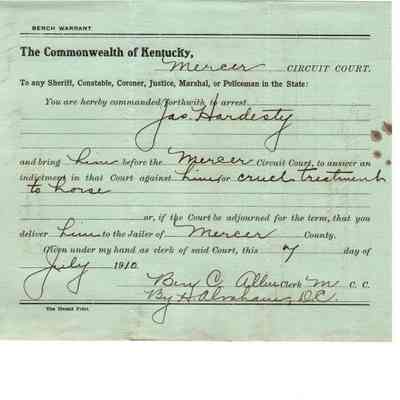 BENCH WARRANT
The Commonwealth of Kentucky,
Mercer CIRCUIT COURT.
To any Sheriff, Constable, Coroner, Justice, Marshal, or Policeman in the State:
You are hereby commanded forthwith to arrest
Jas. Hardesty
and bring him before the Mercer Circuit Court, to answer an
indictment in that Court against him for cruel treatment
to horse
or, if the Court be adjourned for the term, that you
deliver him to the Jailer of Mercer County.
Given under my hand as clerk of said Court, this 7 day of
July 1910.
Ben C. Allin Clerk M C. C.
By H. Abraham, D.C.
The Herald Print.